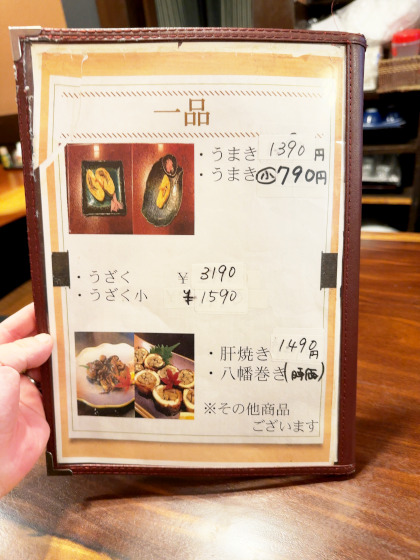 一品
・うまき 1390円
・うまき㊙790円
・うざく ¥ 3190
・うざく小 ¥1590
・肝焼き 1490円
・八幡巻き(時価)
※その他商品
ございます